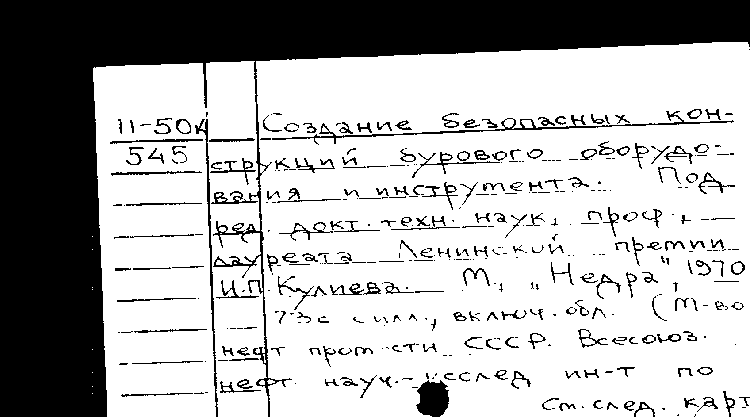 II-50к Создание безопасных кон-
545 струкций бурового оборудо-
вания и инструмента. Под
ред. докт. техн. наук, проф.,
лауреата Ленинской премии
И.П. Кулиева. М., „Недра", 1970
73с с илл., включ. обл. (М-во
нефт пром-сти СССР. Всесоюз.
нефт. науч.-исслед ин-т по
См. след. карт